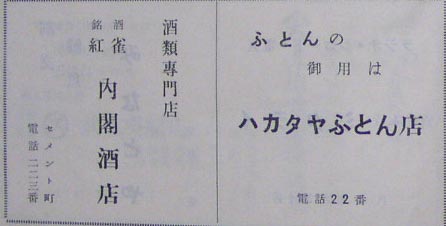 ふとんの
御用は
ハカタヤふとん店
電話22番
酒類専門店
銘酒
紅雀
内閣酒店
セメント町
電話二二三番